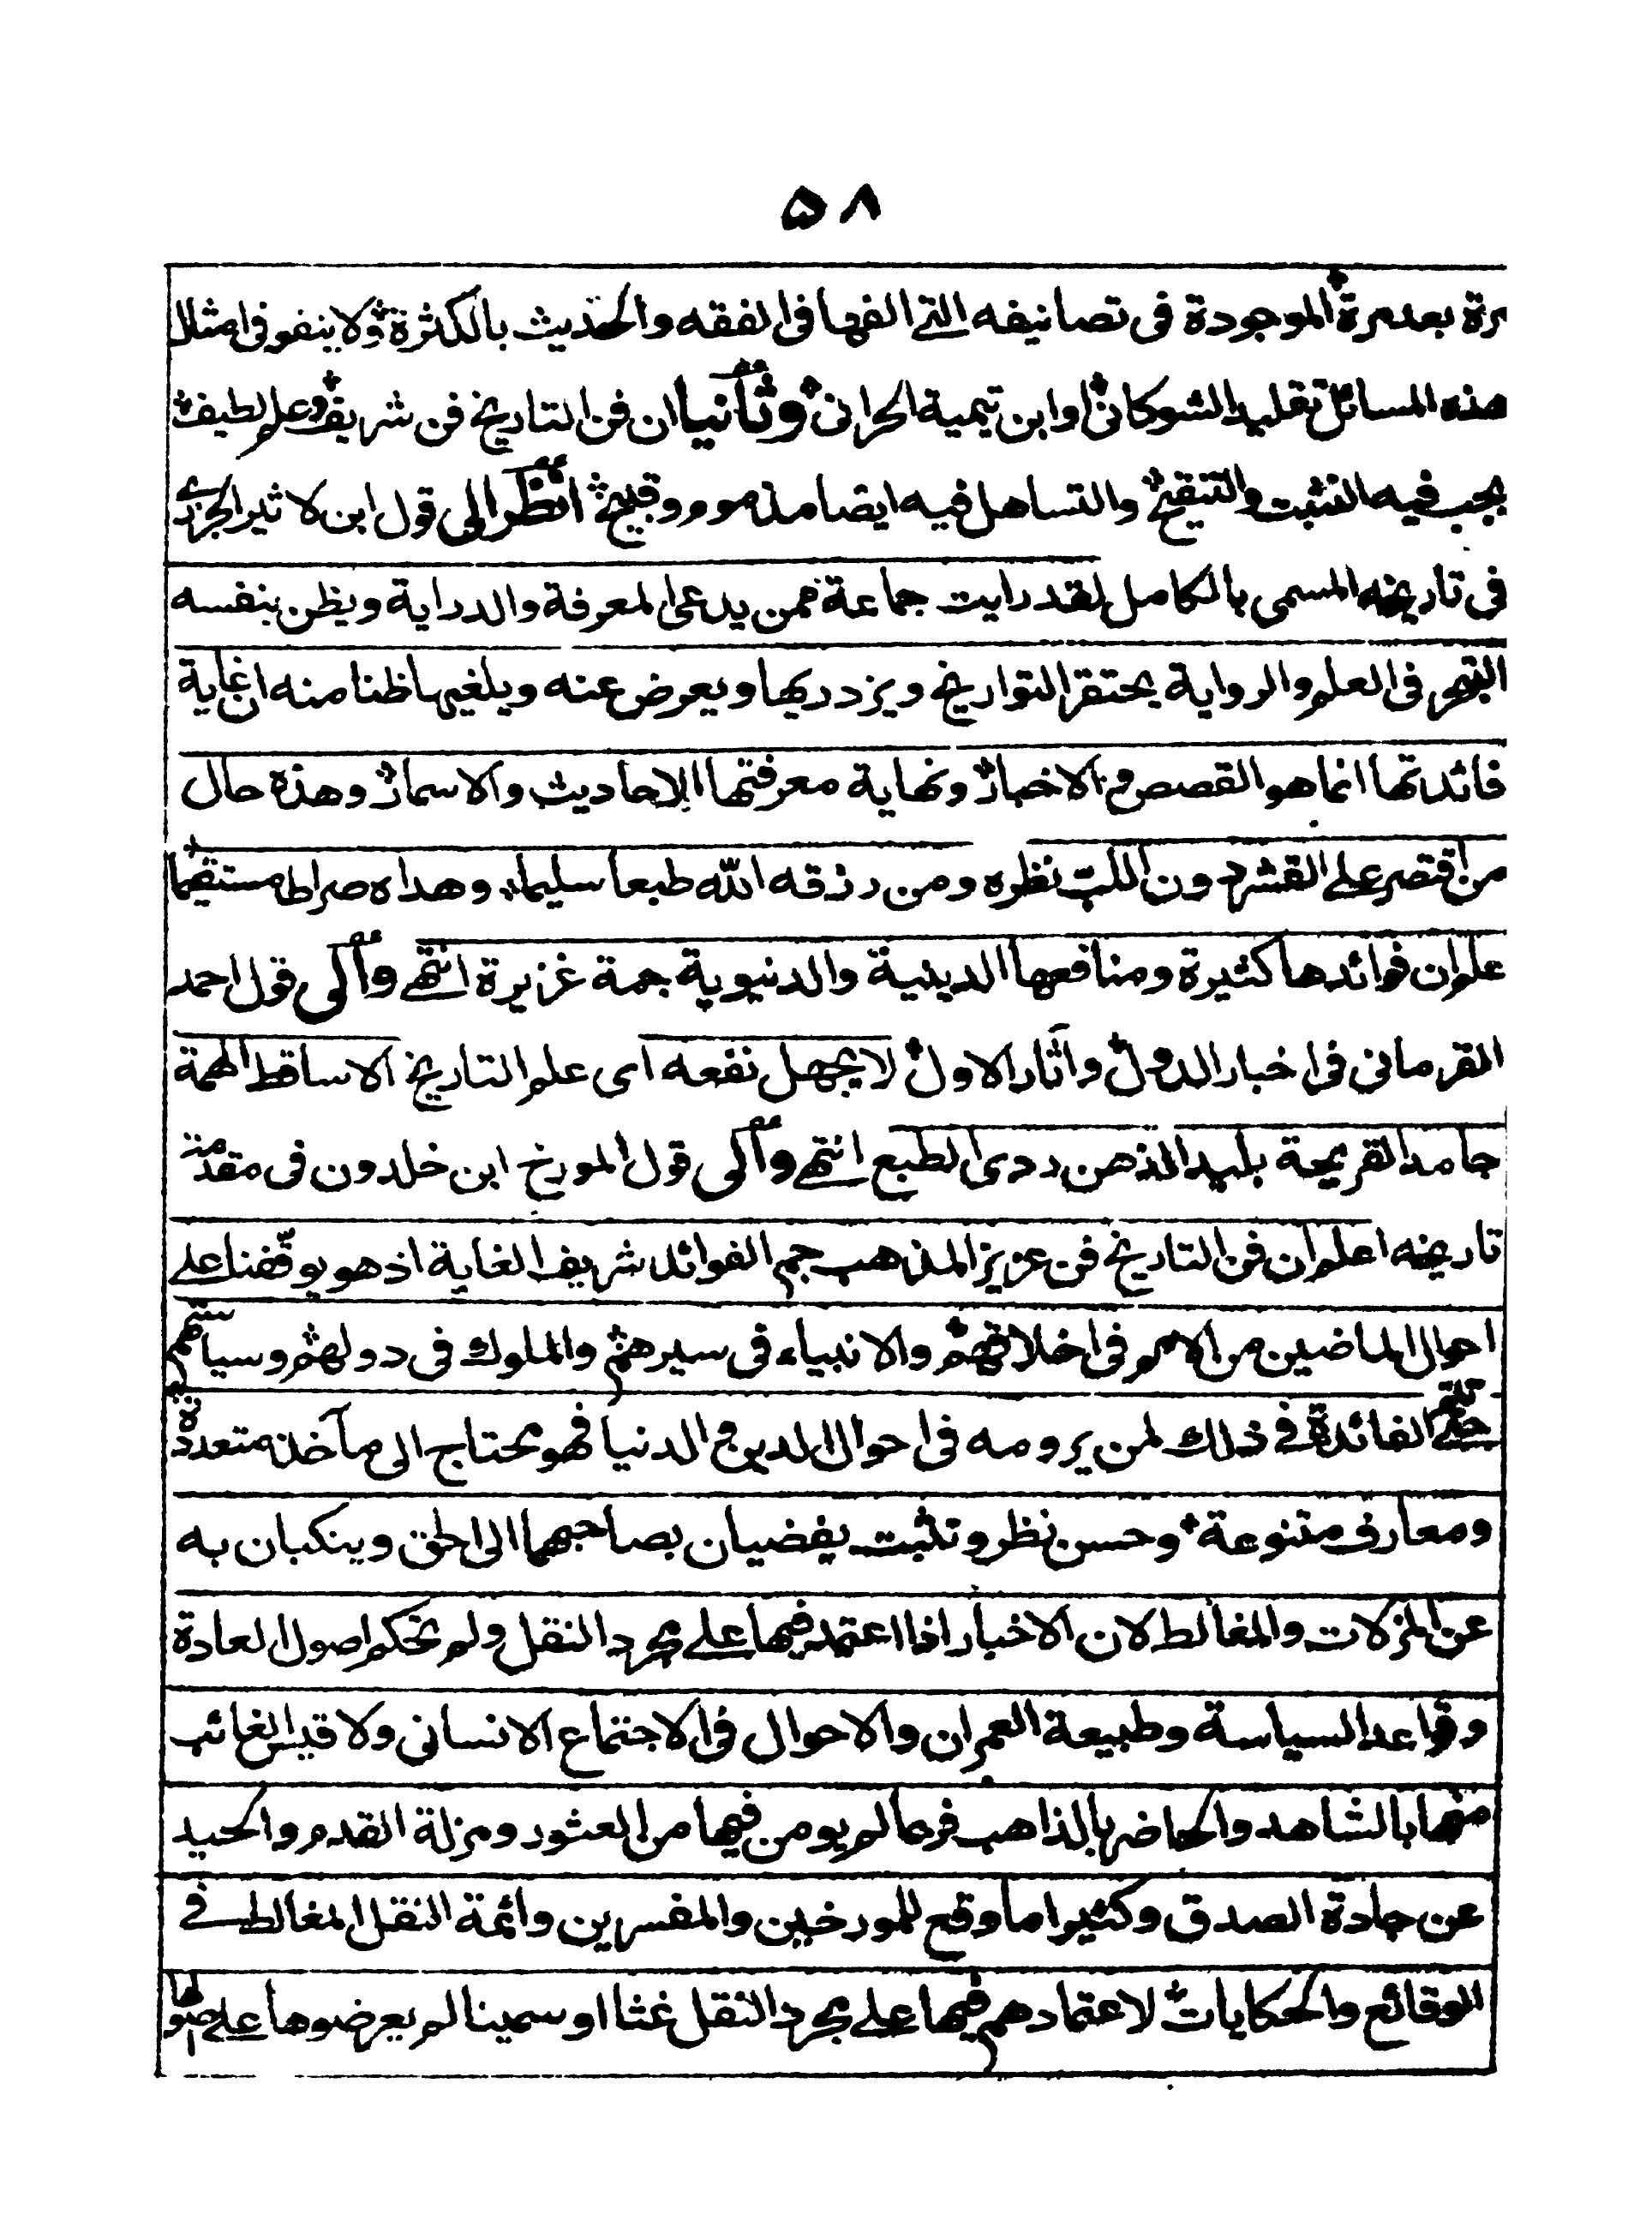 ٥٨
مرة بعد مرة الموجودة فى تصانيفه التے الفها فى الفقه والحديث بالكثرة ولا ينفو فى امثال
هذه المسائل تقليد الشوكانى او ابن تيمية الحرانى وثانيا ان فن التاريخ فن شريف وعلم لطيف
يجب فيه التثبت والتنقيح والتساهل فيه ايضا مذموم وقبيح انظر الى قول ابن لا ثير الجزرے
فى تاريخه المسمى بالكامل لقد رايت جماعة ممن يدعى المعرفة والدراية ويظن بنفسه
التبحر فى العلم والرواية يحتقر التواريخ ويزدريها ويعرض عنه ويلغيها ظنا منه ان غاية
فائدتها انما هو القصص والاخبار ونهاية معرفتها الاحاديث والاسمار وهذه حال
من اقتصر علے القشر دون اللب نظره ومن رزقه الله طبعا سليما وهداه صراطا مستقيما
علم ان فوائدها كثيرة ومنافعها الدينية والدنيوية جمة غزيرة انتهے والى قول احمد
القرمانى فى اخبار الدول وآثار الاول لا يجهل نفعه اى علم التاريخ الا ساقط الهمة
جامد القريحة بليد الذهن ردى الطبع انتهے والى قول المورخ ابن خلدون فى مقدمة
تاريخه اعلم ان فن التاريخ فن عزيز المذهب جم الفوائد شريف الغاية اذ هو يوقفنا علے
احوال الماضين من الامم فى اخلاقهم والانبياء فى سيرهم والملوك فى دولهم وسياستهم
حتے تتم الفائدة فے ذلك لمن يرومه فى احوال الدين والدنيا فهو يحتاج الى مآخذ متعددة
ومعارف متنوعة وحسن نظر وتثبت يفضيان بصاحبهما الى الحق وينكبان به
عن المزلات والمغالط لان الاخبار اذا اعتمد فيها علے مجرد النقل ولم تحكم اصول العادة
وقواعد السياسة وطبيعة العمران والاحوال فى الاجتماع الانسانى ولا قيس الغائب
منها بالشاهد والحاضر بالذاهب فربما لم يومن فيها من العثور ومزلة القدم والحيد
عن جادة الصدق وكثيرا ما وقع للمورخين والمفسرين وائمة النقل المغالط فے
الوقائع والحكايات لاعتمادهم فيها علے مجرد النقل غثا او سمينا لم يعرضوها علے اصولها